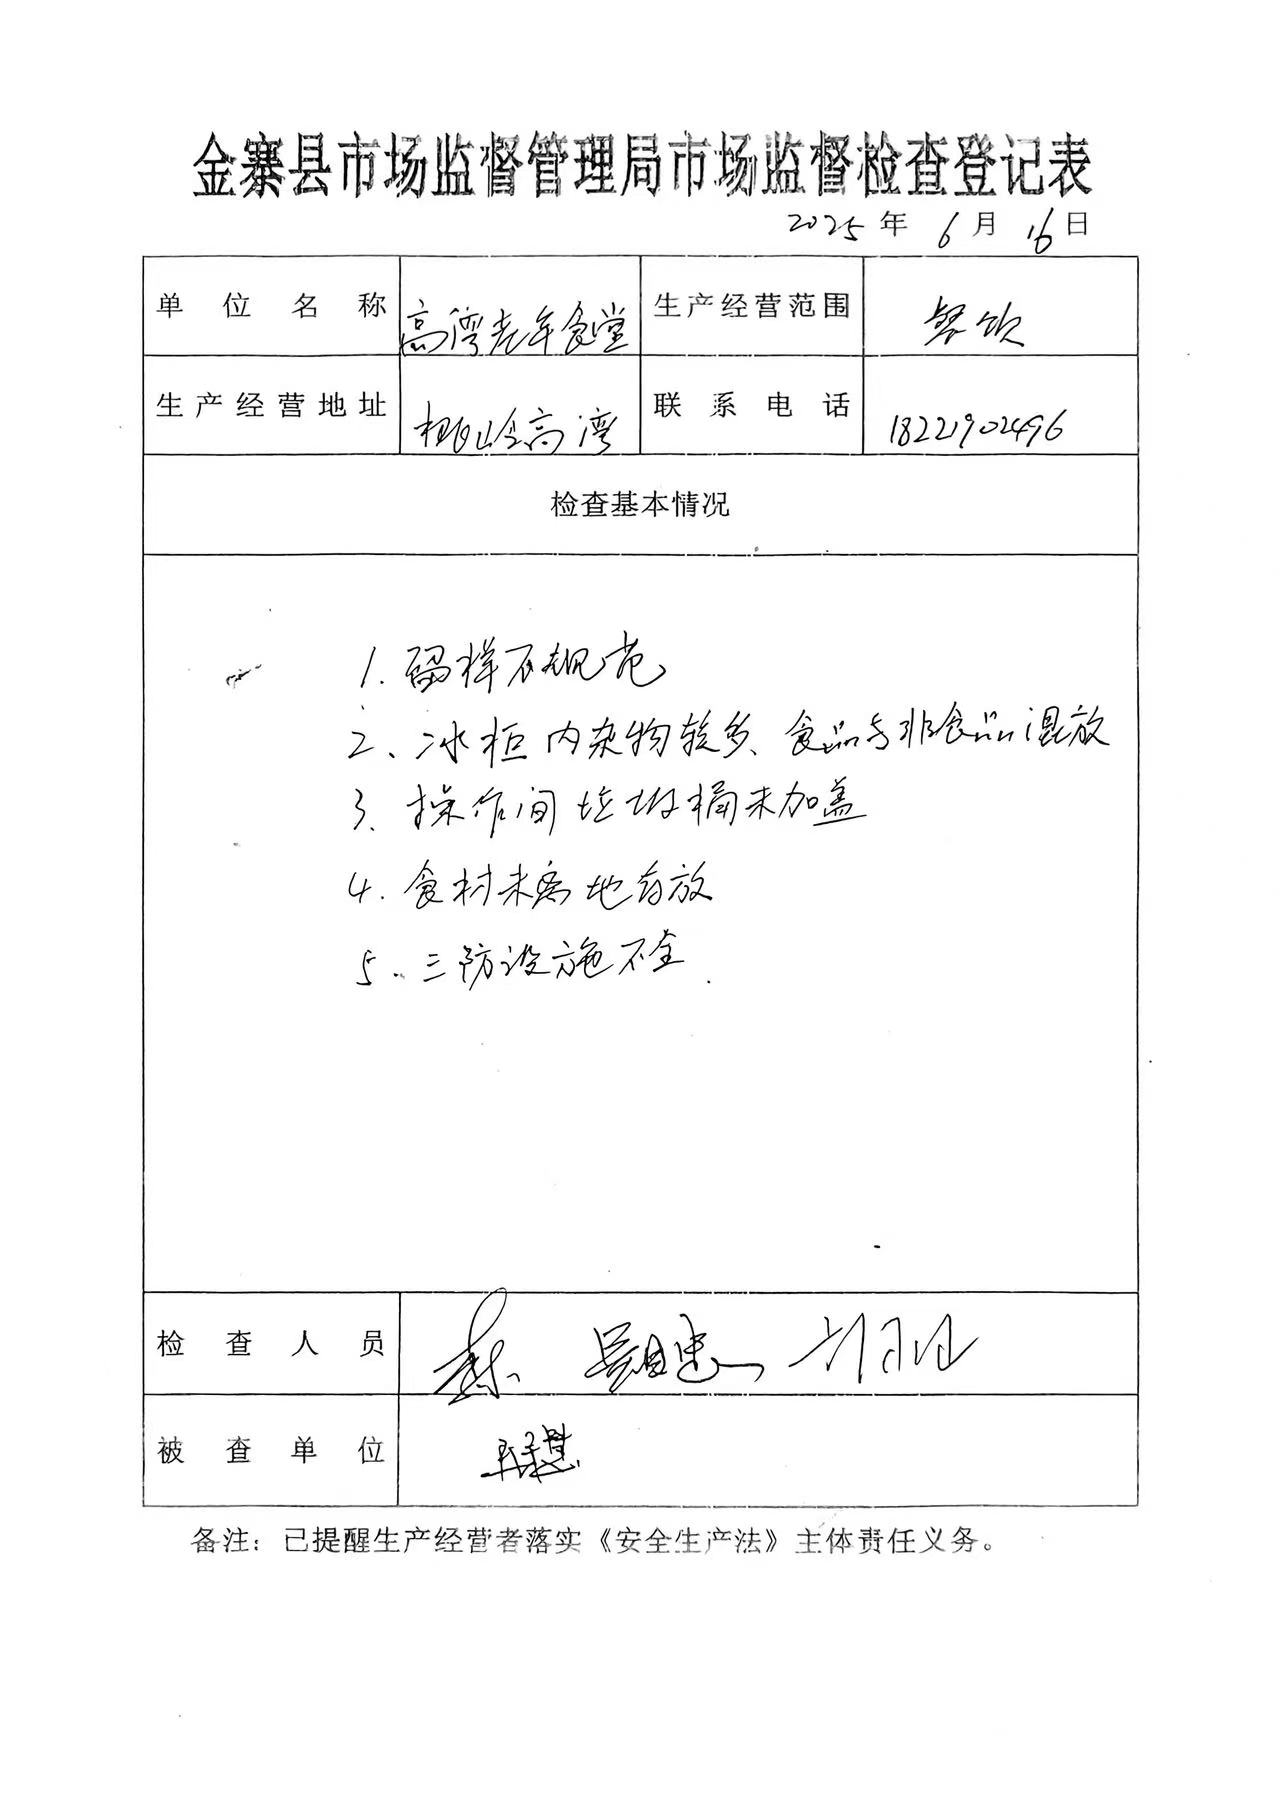 金寨县市场监督管理局市场监督检查登记表
2025年 6月 16日
单位名称 高湾老年食堂 生产经营范围 餐饮
生产经营地址 桃岭高湾 联系电话 18221902496
检查基本情况
1. 留样不规范
2、冰柜内杂物较多、食品与非食品混放
3、操作间垃圾桶未加盖
4. 食材未离地存放
5、三防设施不全.
检查人员
被查单位
备注：已提醒生产经营者落实《安全生产法》主体责任义务。